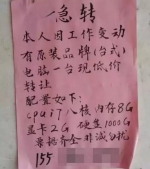 急转
本人因工作变动
有原装品牌(台式)
电脑一台现低价
转让
配置如下:
cpui7八核内存8G
显卡2G 硬盘1000G
齐全非诚勿扰
155